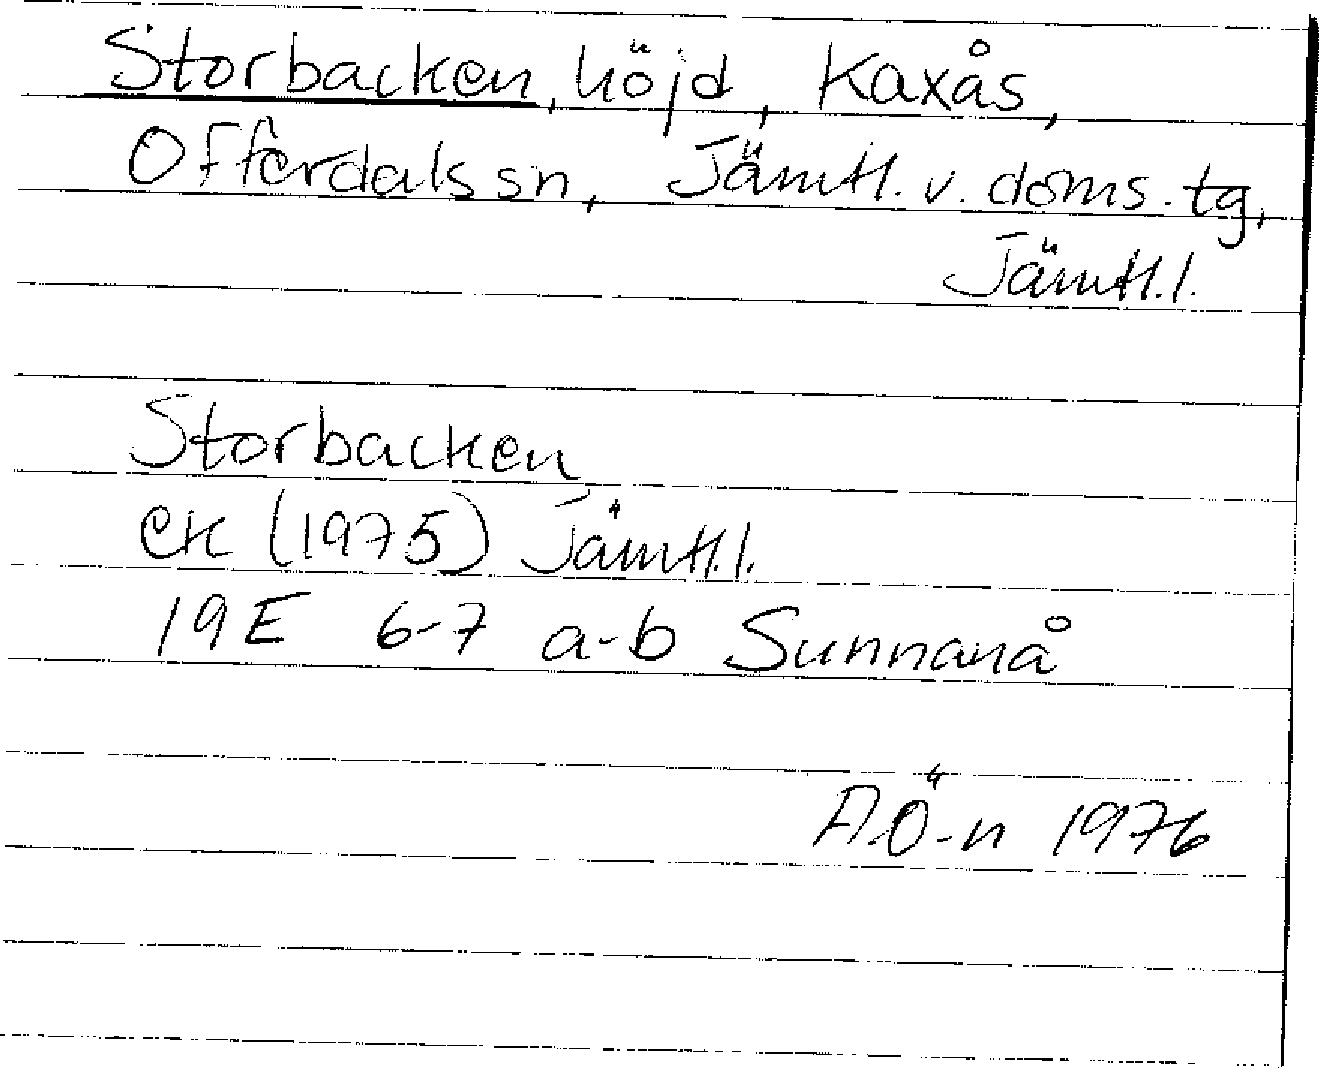 Storbacken, höjd, Kaxås,
Offerdals sn, Jämtl. v. doms. tg,
Jämtl. l.
Storbacken
ek (1975) Jämtl. l.
19E 6-7 a-b Sunnanå
A.Ö-n 1976